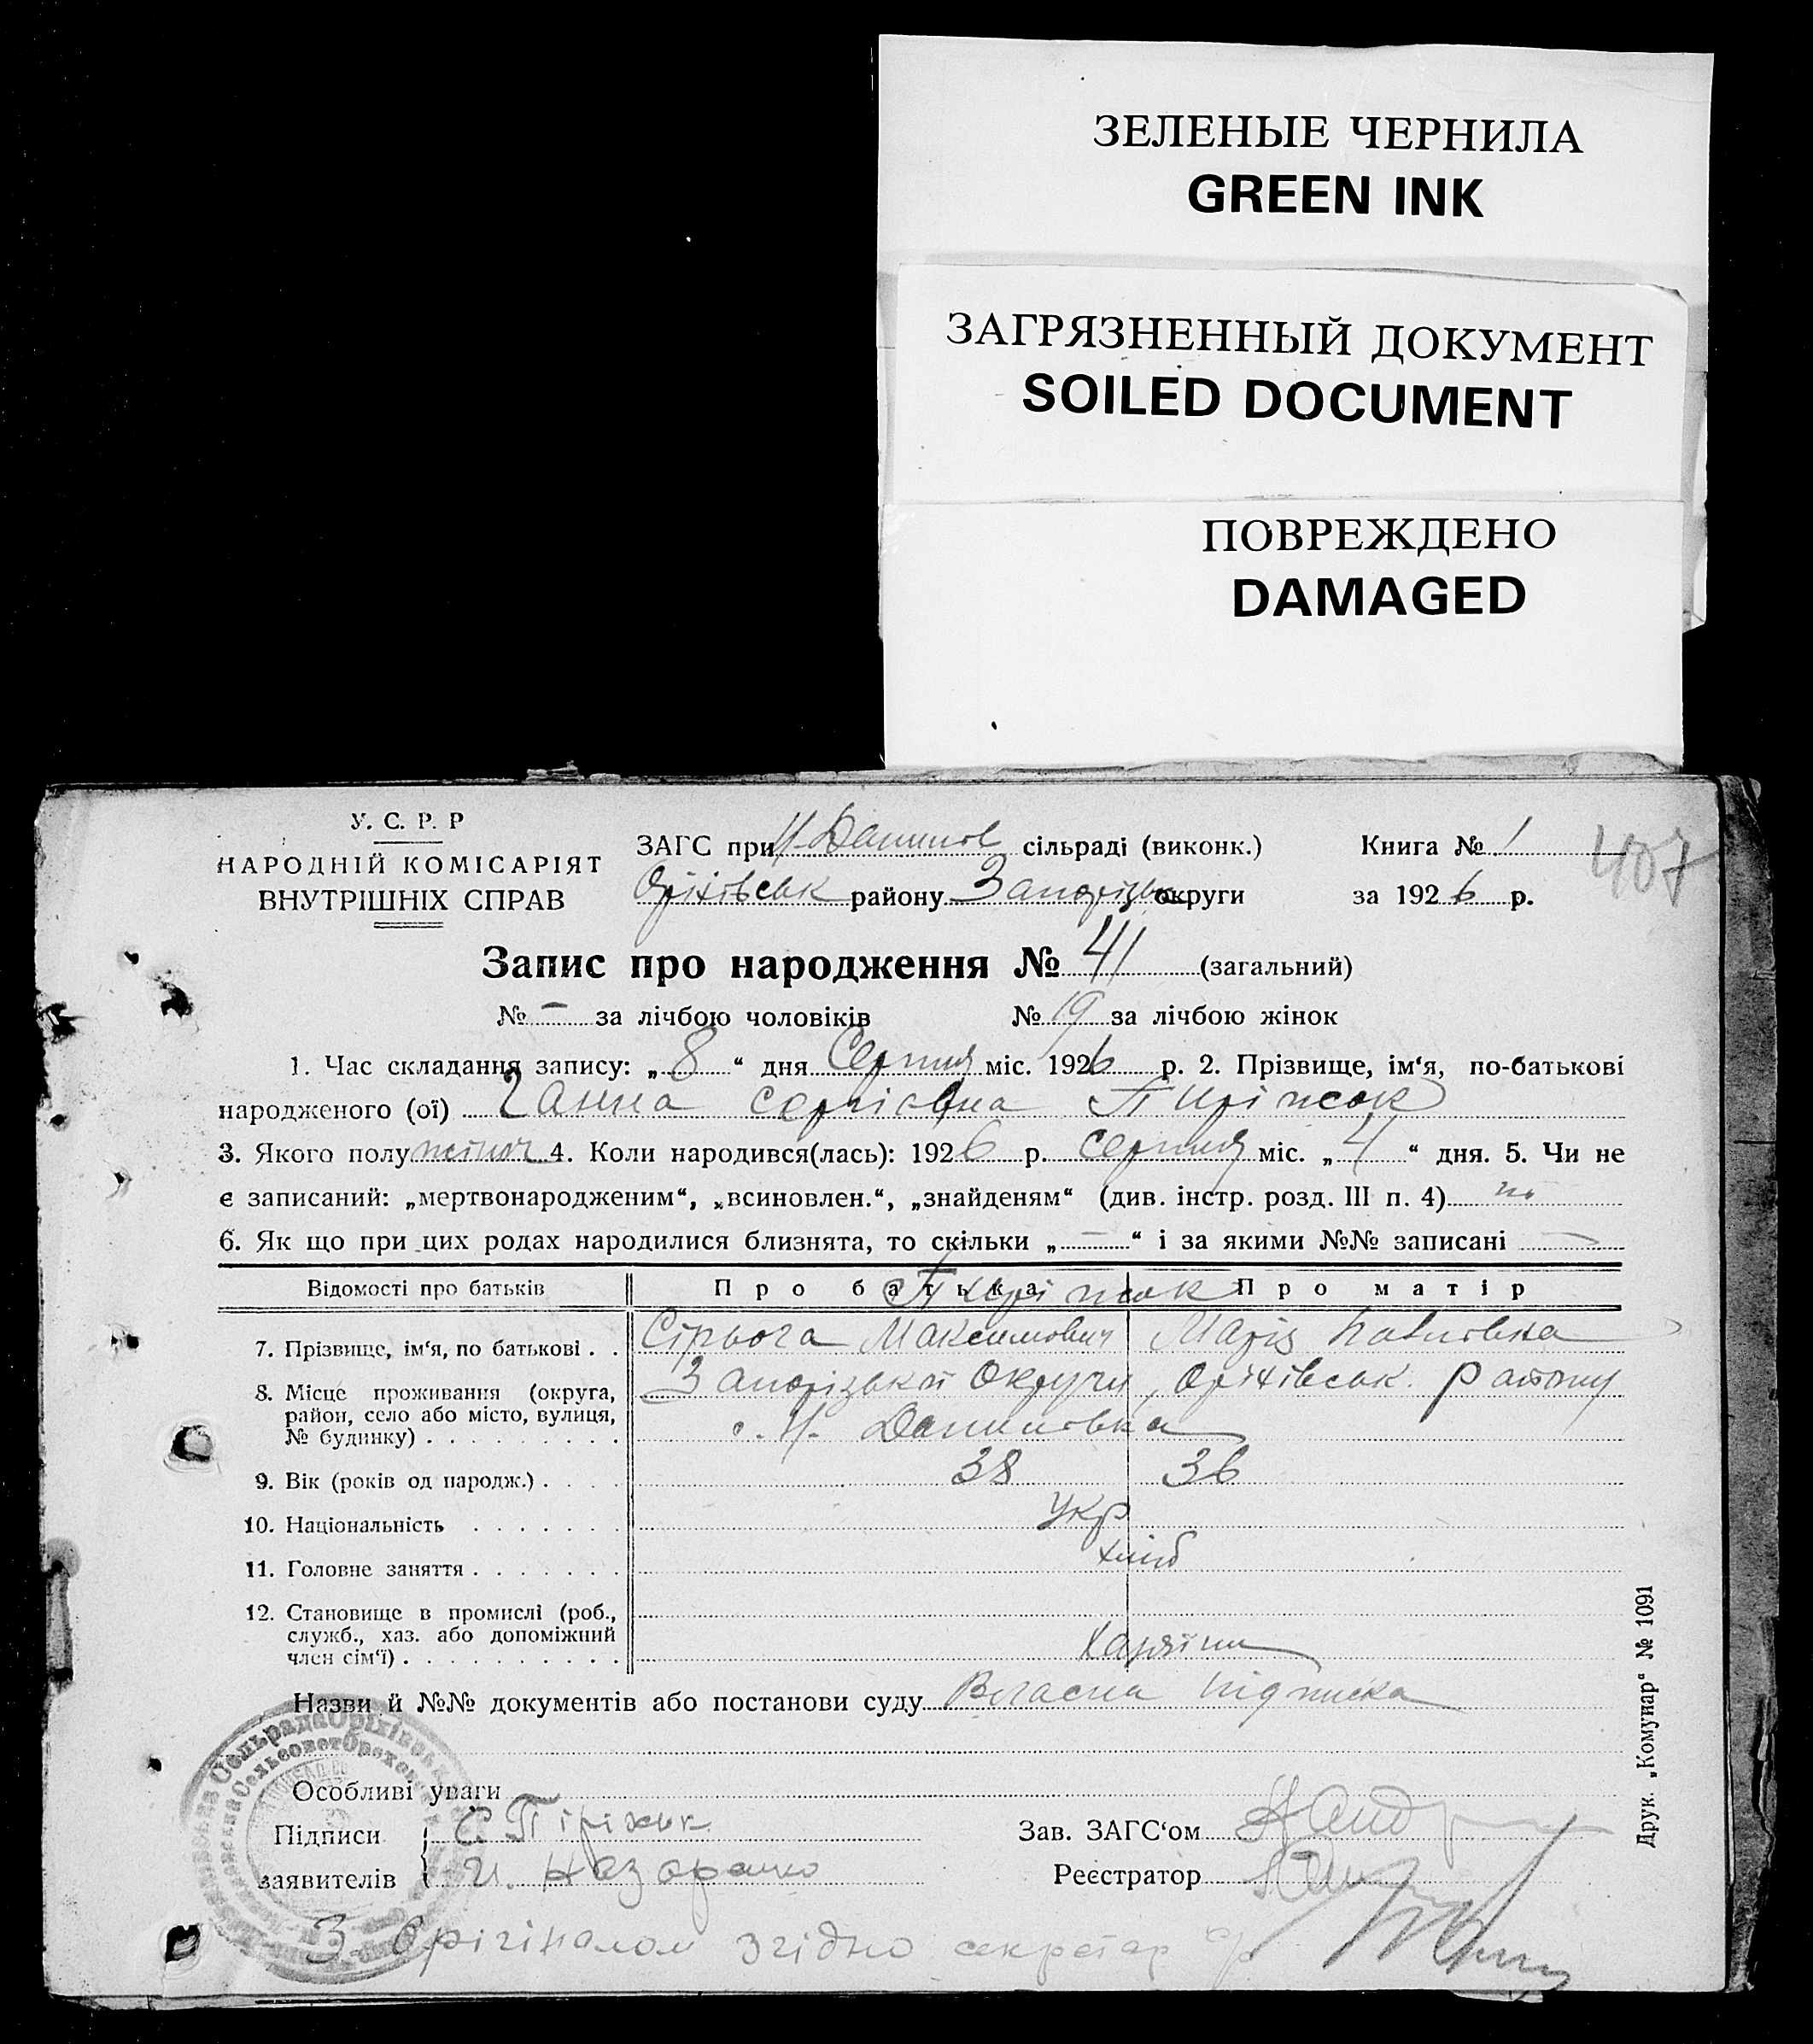 ЗЕЛЕНЫЕ ЧЕРНИЛА
GREEN INK
ЗАГРЯЗНЕННЫЙ ДОКУМЕНТ
SOILED DOCUMENT
ПОВРЕЖДЕНО
DAMAGED
У. С. Р. Р
НАРОДНІЙ КОМІСАРІЯТ
ВНУТРІШНІХ СПРАВ
ЗАГС при Н-Данилов сільраді (виконк.)
Оріхівськ району Запоріцьк округи
Книга № 1
за 1926 р.
407
Запис про народження № 41 (загальний)
№ — за лічбою чоловіків № 19 за лічбою жінок
1. Час складання запису: „8“ дня Серпня міс. 1926 р. 2. Прізвище, ім‘я, по-батькові
народженого (ої) Ганна Сергієвна Пиріжок
3. Якого полу жіноч 4. Коли народився(лась): 1926 р. Серпня міс. „4“ дня. 5. Чи не
є записаний: „мертвонародженим“, „всиновлен.“, „знайденям“ (див. інстр. розд. III п. 4) ні
6. Як що при цих родах народилися близнята, то скільки „—“ і за якими №№ записані —
Відомості про батьків Про батька Про матір
Пиріжок
7. Прізвище, ім‘я, по батькові . . Сірьога Максимович Марія Павловна
8. Місце проживання (округа, район, село або місто, вулиця, № будинку) Запорізькой Округи, Оріхівськ. Району
с. Н. Данилівка
9. Вік (років од народж.) 38 36
10. Національність Укр
11. Головне заняття хліб
12. Становище в промислі (роб., служб., хаз. або допоміжний член сім‘ї) Хазяїни
Назви й №№ документів або постанови суду Власна підписка
Особливі уваги
Підписи заявителів С. Піріжок
И. Назаренко
Зав. ЗАГС‘ом
Реєстратор
З Орігіналом згідно секретар с/р
Друк. „Комунар“ № 1091